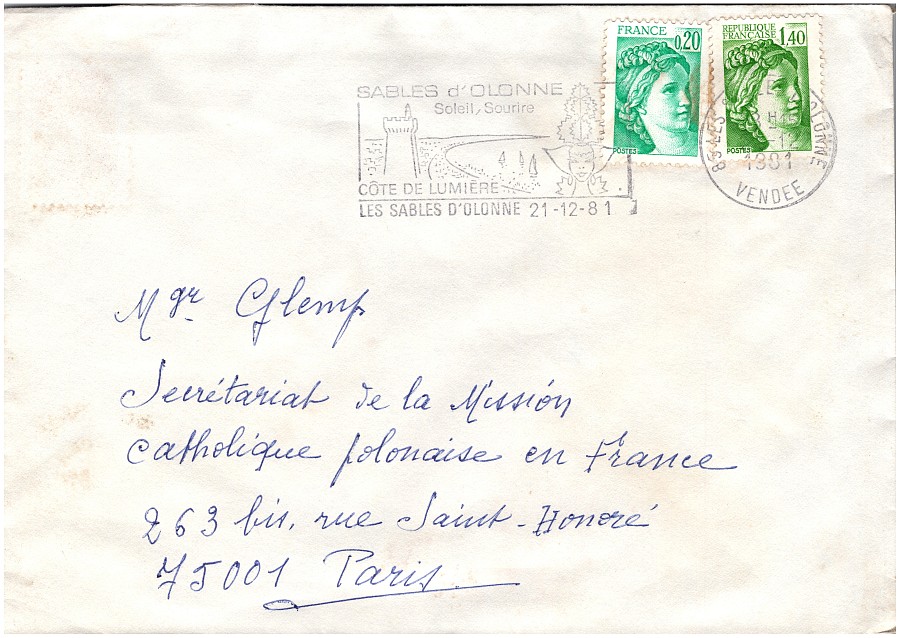 FRANCE
0,20
POSTES
REPUBLIQUE
FRANÇAISE
1,40
POSTES
SABLES d'OLONNE
Soleil, Sourire
CÔTE DE LUMIÈRE
LES SABLES D'OLONNE 21-12-81
85 LES OLONNE
1981
VENDEE
Mgr Glemp
Secrétariat de la Mission
Catholique polonaise en France
263 bis, rue Saint-Honoré
75001 Paris